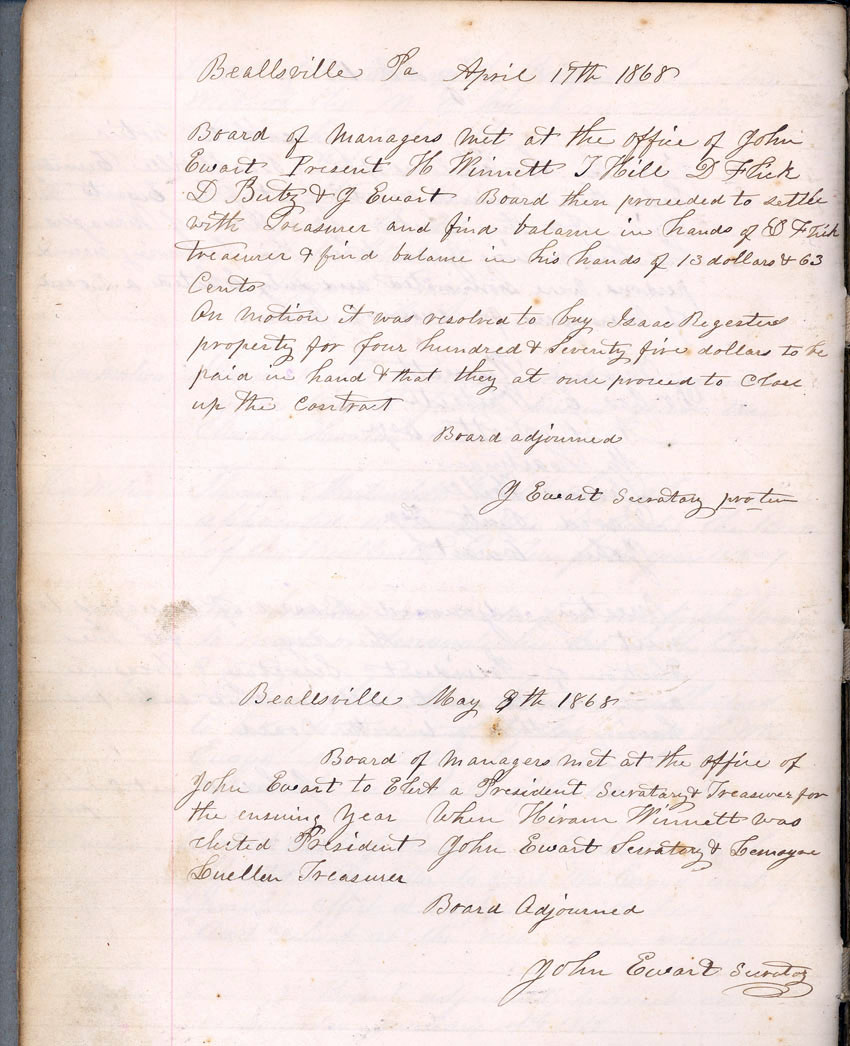 Beallsville Pa April 17th 1868
Board of Managers met at the office of John
Ewart Present H Winnett T Hill D Flick
D Butz & J Ewart Board then proceeded to settle
with Treasurer and find balance in hands of D Flick
Treasurer & find balance in his hands of 13 dollars & 63
Cents
On Motion it was resolved to buy Isaac Regesters
property for four hundred & Seventy five dollars to be
paid in hand & that they at once proceed to Close
up the Contract
Board adjourned
J Ewart Secratary pro tem
Beallsville May 9th 1868
Board of Managers met at the office of
John Ewart to Elect a President Secratary & Treasurer for
the ensuing Year When Hiram Winnett was
elected President John Ewart Secratary & Lemoyne
Luellen Treasurer
Board Adjourned
John Ewart Secratary